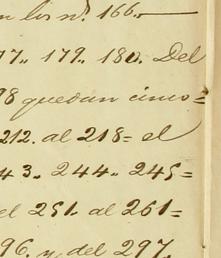 n los nº 166.—
77.. 179.. 180. Del
98 quedan cinco=
212. al 218= el
43.. 244.. 245=
el 251. al 261=
96. y del 297.